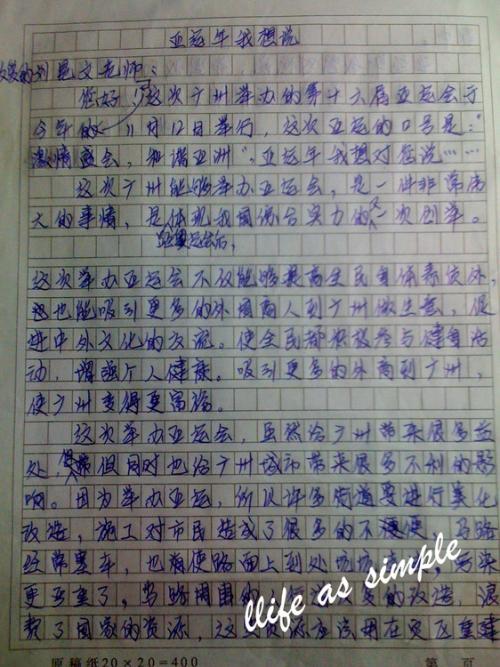 亚运年我想说
敬爱的刘思文老师：
您好！这次广州举办的第十六届亚运会于
今年的11月12日举行，这次亚运的口号是："
激情盛会，和谐亚洲"。亚运年我想对您说……
这次广州能够举办亚运会，是一件非常伟
大的事情，是体现我国综合实力的又一次创举。
运会后，
这次举办亚运会不仅能够提高全民身体素质外，
还也能吸引更多的外国商人到广州做生意，促
进中外文化的交流。使全民都积极参与健身活
动，增强广人健康。吸引更多的外商到广州，
使广州变得更富裕。
这次举办亚运会，虽然给广州带来很多益
处，但同时也给广州城市带来很多不利的影
响。因为举办亚运，所以许多街道要进行美化
改造，施工对市民造成了很多的不便，马路
经常塞车，也有使路面上到处坑坑
更严重了，马路周围的的改造，浪
费了国家的资源，这资源应该用在灾区重建
llife as simple
原稿纸20×20=400
第 页